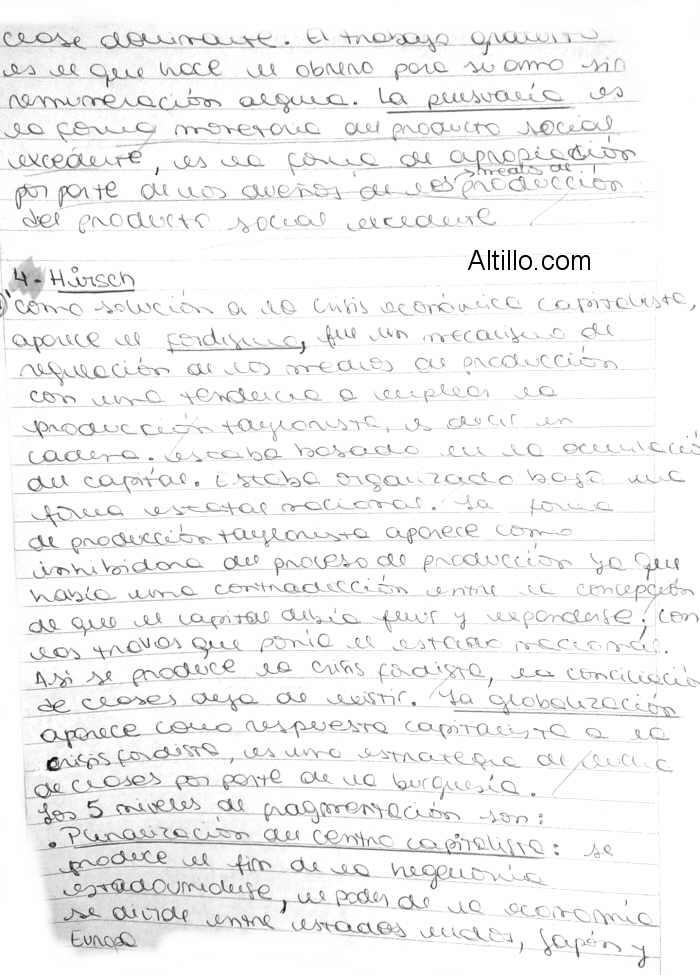 clase dominante. El trabajo gratuito
es el que hace el obrero para su amo sin
remuneración alguna. La plusvalía es
la forma monetaria del producto social
excedente, es la forma de apropiación
por parte de los dueños de los medios de producción
del producto social excedente
Altillo.com
4- Hirsch
Como solución a la crisis económica capitalista,
aparece el fordismo, fue un mecanismo de
regulación de los medios de producción
con una tendencia a emplear la
producción taylorista, es decir en
cadena. estaba basado en la acumulació
del capital. Estaba organizado bajo una
forma estatal nacional. La forma
de producción taylorista aparece como
inhibidora del proceso de producción ya que
había una contradicción entre la concepción
de que el capital debía fluir y expanderse, con
las travas que ponía el estado nacional.
Asi se produce la crisis fordista, la conciliació
de clases deja de existir. La globalización
aparece como respuesta capitalista a la
crisis fordista, es una estrategia de lucha
de clases por parte de la burguesía.
Los 5 niveles de fragmentación son:
• Pluralización del centro capitalista: se
produce el fin de la hegemonía
estadounidense, el poder de la economía
se divide entre estados unidos, Japón y
Europa